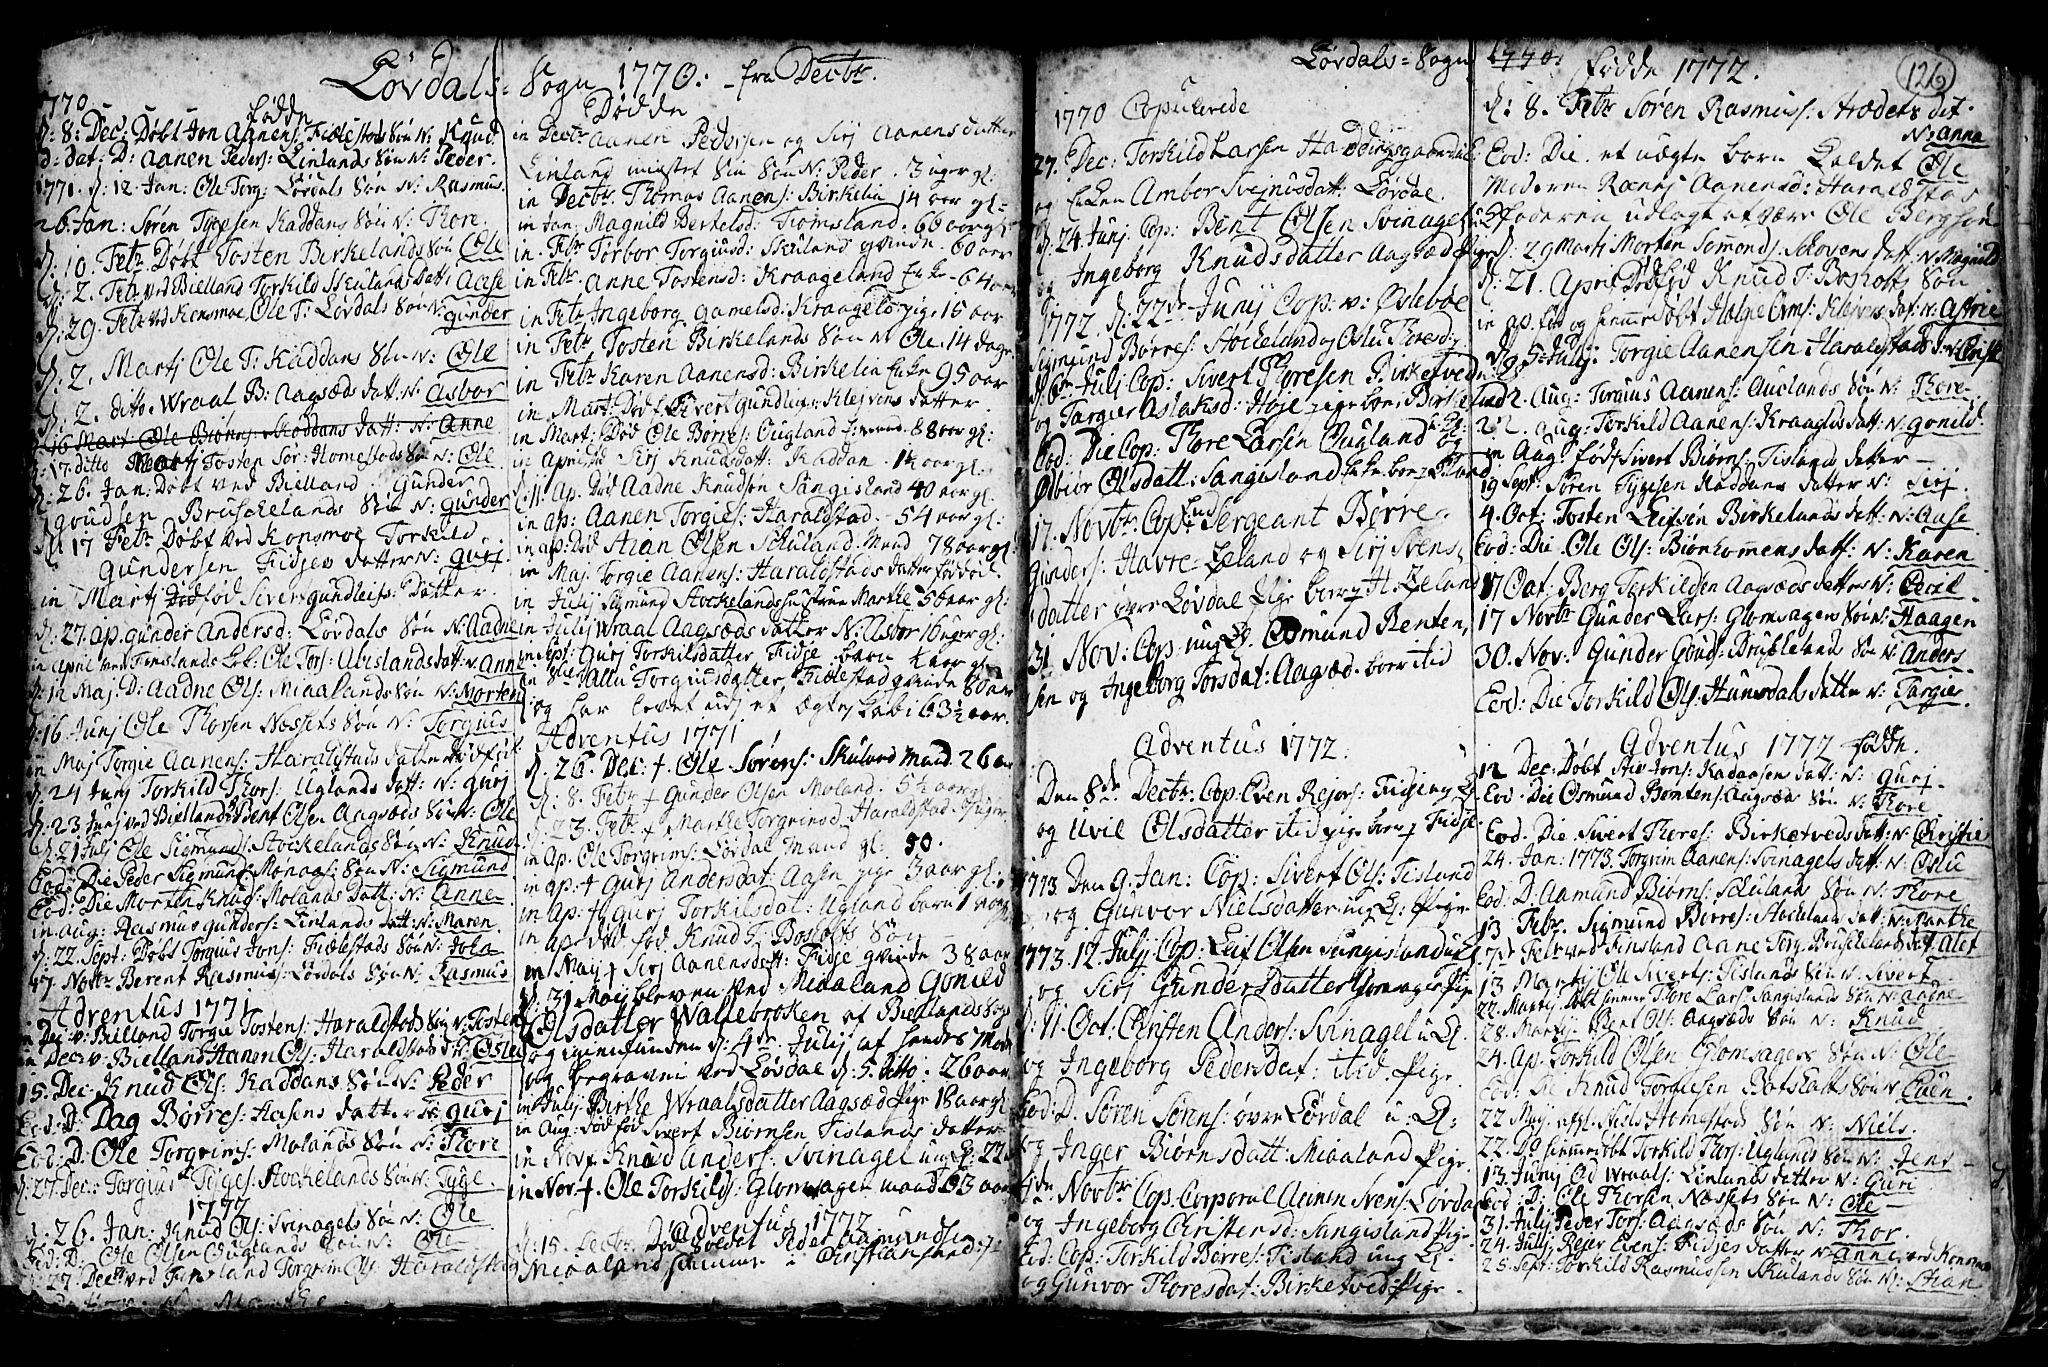 Lövdals= Sogn 1770: - fra Decbr.
1770
Födde
d: 8: Dec: Döbt Jon Aanens: Fielestads Sön N: Knud
d: dat: D: Aanen Peders: Linlands Sön N: Peder.
1771. d: 12 Jan: Ole Torg: Lövdals Sön N: Rasmus.
26 Jan: Sören Tygesen Kaddans Sön N: Thore.
d: 10. Febr. Döbt Tosten Birkelands Sön Ole
d: 2. Febr ved Bielland Torkild Skulands datt: Aase
d: 29. Febr ved Konsmoe Ole T: Lövdals Sön N: Gunder
d: 2. Martj Ole T: Kaddans Sön N: Ole
d: 2. ditto Wraal B: Aagsæds datt: N: Asbor
16 Mart Ole Biörns: Kaddans datt: N: Anne
d: 17 ditto Tosten Sör: Homestads Sön N: Ole
d: 26. Jan: Döbt ved Bielland Gunder
Goudsen Bruskelands Sön N: Gunder
d 17 Febr Döbt ved Konsmoe Torkild
Gundersen Fidjes datter N: Gurj
in Martj födt Siver Gundleifs: Datter.
d: 27. ap. Gunder Andersd: Lövdals Sön N: Aadne
in April ved Finslands Ole Tors: Ubislands datt: N: Anne
d: 12 Maj D: Aadne Ols: Miaalands Sön N: Morten
d: 16 Junj Ole Thorsen Næssets Sön N: Torgius
in Maj Torgie Aanens: Haraldstads datter
d: 24 Junj Torkild Thors: Uglands datt: N: Gurj
d: 23 Junj ved Bielland Bent Olsen Aagsæds Sön N: Ole
d: 21 Julj Ole Sigmunds: Stockelands Sön N: Knud
Eod: Die Peder Sigmunds: Sön N: Sigmund
Eod: Die Morten Knuds: Molands Datt: N: Anne
in Aug: Rasmus Gunders: Linlands datt: N: Maren
d: 22. Sept: Döbt Torgius Jons: Fielestads Sön N: Jola
17. Novbr Berent Rasmus: Lövdals Sön N: Rasmus
Adventus 1771
in Dec: v: Bielland Torgie Tostens: Haraldstads Sön N: Tosten
in Dec: v: Bielland Aanen Ols: Haraldstads d: N: Oslu
15. Dec: Knud Ols: Kaddans Sön N: Peder
Eod: D: Dag Börres: Aasens datter N: Gurj
Eod: D. Ole Torgrims: Molands Sön N: Thore
d: 27. Dec: Torgius Tyges: Stockelands Sön N: Tyge
1772
d: 26. Jan: Knud Ols: Svinagels Sön N: Ole
Eod: D: Ole Olsen Ouglands Sön N: Ole
d: 27. Decbr ved Finsland Torgrim Ols: Haraldstads
Dödde
in Decbr Aanen Pedersen og Sirj Aanens datter
Linland mistet Sin Sön N: Peder. 3 uger gl:
in Decbr Thomas Aanens: Birkelin 14 aar gl:
in Jan: Magnild Bertelsd: Tomesland. 60 aar gl:
in Febr Torbor Torgiusd: Skuland qvinde. 60 aar
in Febr. Anne Tostensd: Kraageland Enke - 64 aar
in Febr Ingeborg Gamelsd: Kraagel: pige 15 aar
in Febr Tosten Birkelands Sön N: Ole. 14 dage
in Febr Karen Aanensd: Birkelin Enke 95 aar
in Mart: Död f. Sivert Gundleifs: Klejvens datter
in Mart: Död Ole Börres: Ougland 88 aar gl:
in April död Sirj Knudsdatt: Kaddan. 14 aar gl:
d: 11. Ap. död Aadne Knudsen Sangisland 40 aar gl:
in ap: Aanen Torgies: Haraldstad. 54 aar gl:
in ap: död Stian Olsen Skuland. Mand 78 aar gl:
in Maj: Torgie Aanens: Haraldstads datter
in Julij Sigmund Stockelands hustrue Marthe 50 aar gl:
in Julij Wraal Aagsæds datter N: Asbor 16 uger gl:
in Sept: Gurj Torkilsdatter Fidje barn aar gl:
in 8br Tallu Torgiusdatter Fielestad qvinde 80 aar
og har levet udj et Ægteskab i 63½ aar.
Adventus 1771
d. 26. Dec: + Ole Sörens: Skuland Mand 26 aar
d: 8. Febr + Gunder Olsen Moland. 5½ aar gl:
d: 23. Febr + Marthe Torgrimsd Haraldstad
in Ap. Ole Torgrims: Lövdal Mand gl: 50.
in ap: + Gurj Andersdat: Aasen pige 3 aar gl:
in Ap: + Gurj Torkilsdat: Ugland barn 1
in ap: död föd Knud T: Bosholts Sön
in Maij + Sirj Aanensdatt: Fidje qvinde 38 aar
d. 31 Maij bleven ved Miaaland Gonild
Olsdatter Wallebroken af Biellands Sogn
og igienfunden d: 4de Julij af hendes Moder
og begraven ved Lövdal d: 5. Ditto. 26 aar
in Julij Birthe Wraalsdatter Aagsæd Pige 18 aar gl:
in Aug: död föd Sivert Biörnsen Tislands datter
in Nov + Knud Anders: Svinagel ung K: 22
in Nov + Ole Torkilds: Glomsager mand 63 aar
Adventus 1772
d: 15. Decbr Peder Aamundsen
Miaaland Christiansand
Lövdals= Sogn 1770.
1770 Copulerede
27. Dec: Torkild Larsen Haddingsgaardsli
og Enken Ambor Svejnusdatt: Lövdal.
d: 24 Junj. Cop: Bent Olsen Svinagel
og Ingeborg Knudsdatter Aagsæd
1772 d: 22de Junij Cop: v: Öslebøe
Sigmund Börres: Stockeland og Oslu Thoresd:
d. 6te Julj Cop: Sivert Thoresen Birketved
og Targier Aslaksd: Höje pige
Eod: Die Cop: Thore Larsen Ougland
Olbior Olsdatt: Sangisland Enke
17. Novbr: Cop: Sergeant Börre
Gunders: Havre Leland og Sirj Svens
datter övre Lövdal Pige
31. Nov: Cop. ung K: Osmund Renten,
sen og Ingeborg Torsdat: Aagsæd. ibid
Adventus 1772.
Den 8de Decbr: Cop. Even Rejers: Fidje ung K:
og Uvil Olsdatter itid pige Fidje
1773 Den 9. Jan: Cop: Sivert Ols: Tisland
og Gunvor Nielsdatter ung K: Pige
1773. 12. Julj Cop: Leif Olsen Sangisland u: K:
og Sirj Gundersdatter Glomsager Pige
d: 11. Oct: Christen Anders: Svinagel u: K:
og Ingeborg Pedersdat: itid. Pige.
Eod: D. Sören Sörens: övre Lövdal u: K:
og Inger Biörnsdatt: Miaaland Pige
Novbr Cop. Corporal Aanen Svens: Lövdal
og Ingeborg Christensd: Sangisland Pige
Eod: Cop: Torkild Börres: Tisland ung K:
og Gunvor Thoresdat: Birketved Pige.
126
Födde 1772.
d: 8. Febr Sören Rasmus: Strædets dat.
N: Anna
Eod: Die et uægte barn kaldet Ole
Moderen Rannj Aanensd: Haraldstad
Faderen udlagt at være Ole Bergsen
d: 29 Martj Morten Somonds: Skovens datt: N: Magnild
d: 21. April Död föd Knud T: Bosholts Sön
in ap. föd og hiemmedöbt Helge Arns: Klejvens dat: N: Astrie
d: 5. Julij: Torgie Aanensen Haraldstads d: N: Christ
2. Aug: Torgius Aanens: Auglands Sön N: Thore.
22. Aug: Torkild Aanens: Kraagels datt: N: Gonild.
in Aug: föd Sivert Biörns: Tislands datter -
19 Sept: Sören Tygesen Kaddans datter N: Sirj.
4. Oct: Tosten Leifsen Birkelands datt: N: Aase
Eod: Die Ole Ols: Biönkomens datt: N: Karen
17 Oct: Berg Torkildsen Aagsæds datter N: Cecil
17 Novbr Gunder Lars: Glomsagers Sön N: Haagen
30. Nov: Gunder Gouds: Bruskeland Sön N: Anders.
Eod: Die Torkild Ols: Hunsdals datter N: Targier
Adventus 1772 födde.
12 Dec: Döbt Stie Jons: Kadansen datt: N: Gurj.
Eod. Die Osmund Bentens: Aagsæds Sön N: Thore
Eod. Die Sivert Thores: Birketveds datt: N: Christie
24. Jan: 1773. Torgrim Aanens: Svinagels datt: N: Oslu
Eod. D. Aamund Biörns: Skulands Sön N: Thore
13 Febr. Sigmund Börres: Stockeland datt: N: Marthe
Febr ved Finsland Aane Torg: Bruskelands dat Talet
13 Martij Ole Siverts: Tislands Sön N: Sivert
22. Martij Thore Lars: Sangislands Sön N: Aadne
28. Martj: Bent Ols: Aagsæds Sön N: Knud
24. Ap. Torkild Olsen Glomsagers Sön N: Ole
Eod: Die Knud Torgiesen Botshafts Sön N: Even.
22 Maj: Niels Homestad Sön N: Niels.
22. Do hiemmedöbt Torkild Thors: Uglands Sön N: Jens -
13. Junij Od Wraals: Linlands datter N: Guri
Eod: D: Ole Thorsen Næssets Sön N: Ole -
31. Julij Peder Tors: Aagsæds Sön N: Thor
24. Julij Rejer Evens: Fidjes datter N: Anne ved Konsmo
25. Sept: Torkild Rasmussen Skulands Sön N: Stian